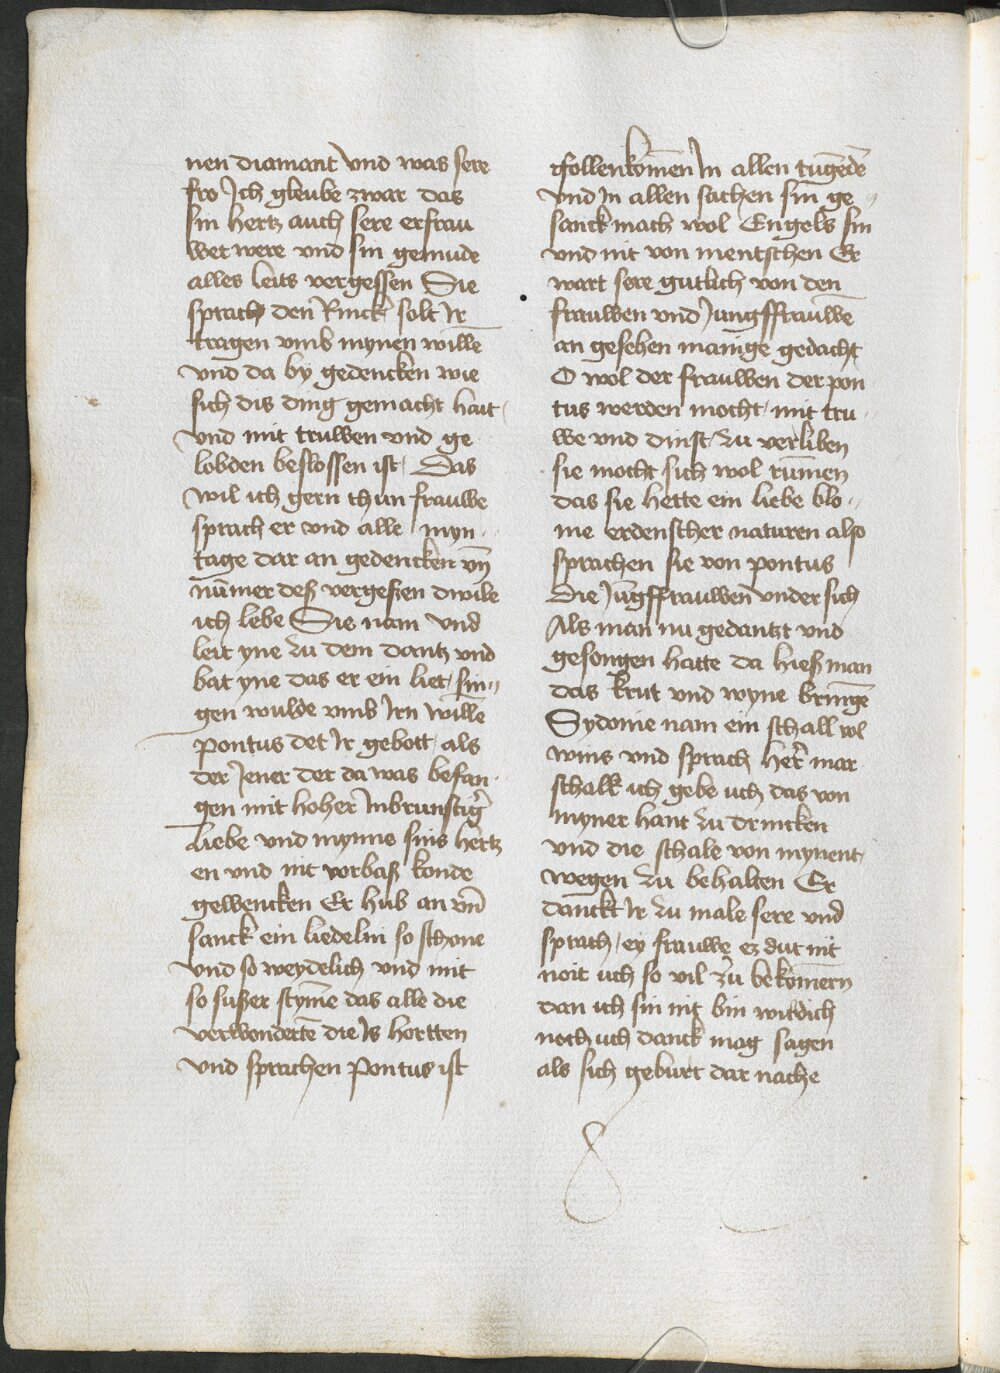 nen diamant vnd was sere
fro Ich gleube zwar das
sin hertz auch sere erfrau
wet were vnd sin gemude
alles leits vergessen Sie
sprach den Rinck solt Ir
tragen vmb mynen willē
vnd da by gedencken wie
sich dis ding gemacht hait
vnd mit truwen vnd ge
lobden beslossen ist Das
wil ich gern thun frauwe
sprach er vnd alle myn
tage dar an gedencken vn̄
nūmer deß vergeßen dwile
ich lebe Sie nam vnd
leit yne zu dem dantz vnd
bat yne das er ein liet sin„
gen wulde vmb Irn willē
pontus det Ir gebott als
der Jener der da was befan
gen mit hoher Inbrunstig̛
liebe vnd mynne sins hertz
en vnd nit vorbaß konde
gewencken Er hub an vn̄
sanck ein liedelin so schone
vnd so weydelich vnd mit
so sußer stym̄e das alle die
verwondertē die Is hortten
vnd sprachen pontus ist
follenkom̄en In allen tugēdē
vnd In allen sachen sin ge„
sanck mach wol Engels sin
vnd nit von mentschen Er
wart sere gutlich von den
frauwen vnd Jungffrauwē
an gesehen manige gedacht
O wol der frauwen der pon
tus werden mocht mit tru
we vnd dinst zu verliben
sie mocht sich wol rūmen
das sie hette ein liebe blo„
me erdenscher naturen also
sprachen sie von pontus
Die Jūgffrauwen vnder sich
Als man nu gedantzt vnd
gesongen hatte da hieß man
das krut vnd wyne bringē
Sydonie nam ein schall vol
wins vnd sprach her̄ mar
schalk ich gebe uch das von
myner hant zu drincken
vnd die schale von mynent
wegen zu behalten Er
danckt Ir zu male sere vnd
sprach ey frauwe ez dut nit
noit uch so vil zu bekom̄ern
dan ich sin nit bin wirdich
noch uch danck mag sagen
als sich geburt dar nache